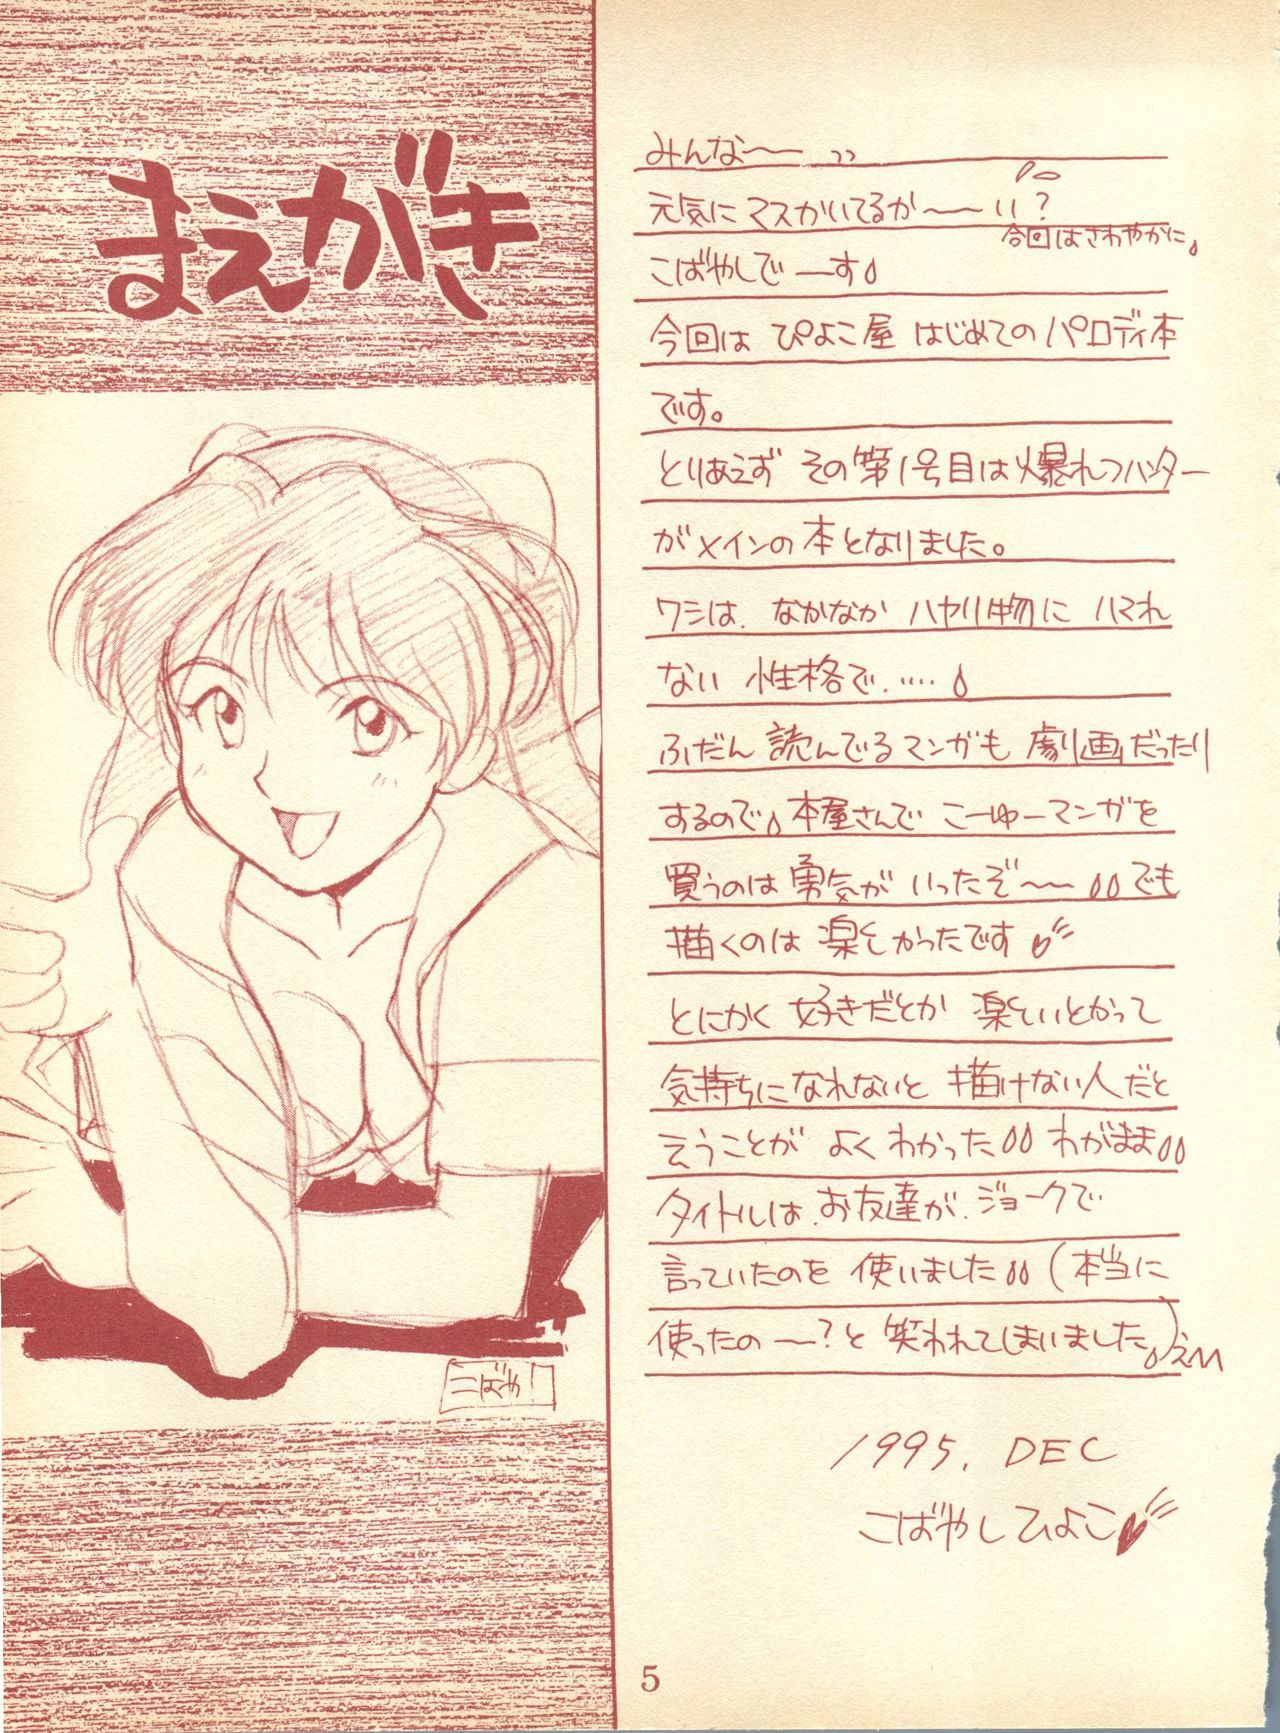 まえがき
みんな〜〜ッッ
元気にマスかいてるか〜〜い?
今回はさわやかに。
こばやしでーす
今回は ぴよこ屋 はじめてのパロディ本
です。
とりあえず その第1号目は爆れつハンター
がメインの本となりました。
ワシは、なかなか ハヤリ物に ハマれ
ない 性格で.....
ふだん 読んでるマンガも 劇画だったり
するので 本屋さんで こーゆーマンガを
買うのは 勇気が いったぞ〜〜 でも
描くのは 楽しかったです
とにかく 好きだとか 楽しいとかって
気持ちになれないと 描けない人だと
いうことが よくわかった わがまま
タイトルは、お友達が、ジョークで
言っていたのを 使いました (本当に
使ったの〜〜?と 笑われてしまいました)
こばや!
1995. DEC
こばやしひよこ
5